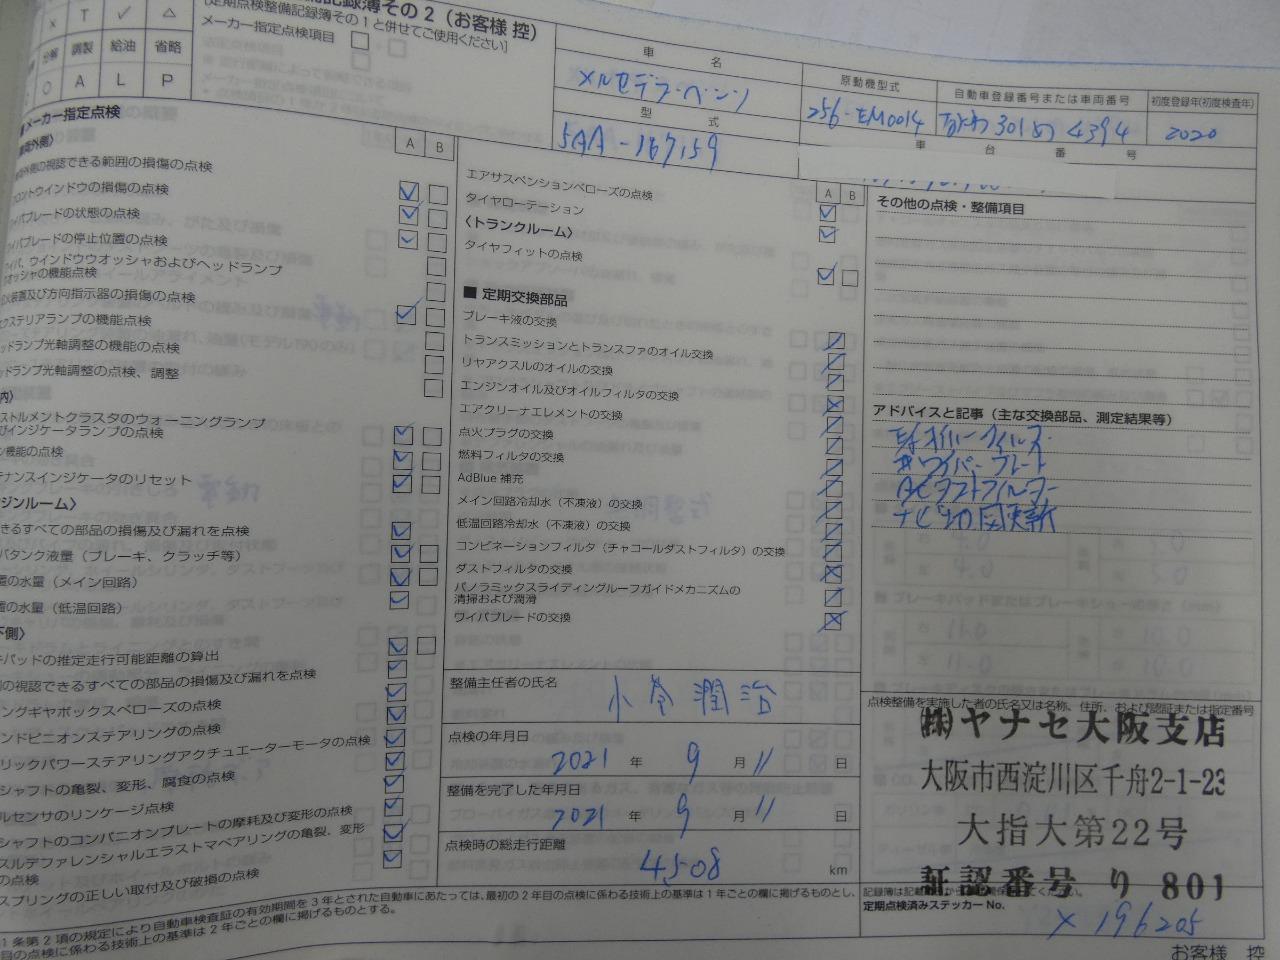 記録簿その2（お客様 控）
定期点検整備記録簿その1と併せてご使用ください]
メーカー指定点検項目
× T ✓ △
分解 調製 給油 省略
O A L P
車 名
メルセデス・ベンツ
型 式
5AA-167159
原動機型式
256-EM0014
自動車登録番号または車両番号
301 4394
初度登録年(初度検査年)
2020
車 台 番 号
メーカー指定点検
A B
視認できる範囲の損傷の点検
フロントウインドウの損傷の点検
ワイパブレードの状態の点検
ワイパブレードの停止位置の点検
ワイパ、ウインドウウオッシャおよびヘッドランプ
ウオッシャの機能点検
灯火装置及び方向指示器の損傷の点検
エクステリアランプの機能点検
ヘッドランプ光軸調整の機能の点検
ヘッドランプ光軸調整の点検、調整
インストルメントクラスタのウォーニングランプ
及びインジケータランプの点検
機能の点検
メンテナンスインジケータのリセット
エンジンルーム〉
できるすべての部品の損傷及び漏れを点検
タンク液量（ブレーキ、クラッチ等）
置の水量（メイン回路）
置の水量（低温回路）
下側〉
パッドの推定走行可能距離の算出
の視認できるすべての部品の損傷及び漏れを点検
ングギヤボックスベローズの点検
ンドピニオンステアリングの点検
リックパワーステアリングアクチュエーターモータの点検
シャフトの亀裂、変形、腐食の点検
ルセンサのリンケージ点検
シャフトのコンパニオンプレートの摩耗及び変形の点検
スルデファレンシャルエラストマベアリングの亀裂、変形
の点検
スプリングの正しい取付及び破損の点検
エアサスペンションベローズの点検
A B
タイヤローテーション
〈トランクルーム〉
タイヤフィットの点検
■ 定期交換部品
ブレーキ液の交換
トランスミッションとトランスファのオイル交換
リヤアクスルのオイルの交換
エンジンオイル及びオイルフィルタの交換
エアクリーナエレメントの交換
点火プラグの交換
燃料フィルタの交換
AdBlue 補充
メイン回路冷却水（不凍液）の交換
低温回路冷却水（不凍液）の交換
コンビネーションフィルタ（チャコールダストフィルタ）の交換
ダストフィルタの交換
パノラミックスライディングルーフガイドメカニズムの
清掃および潤滑
ワイパブレードの交換
整備主任者の氏名
点検の年月日
2021 年 9 月 11 日
整備を完了した年月日
2021 年 9 月 11 日
点検時の総走行距離
4508 km
その他の点検・整備項目
アドバイスと記事（主な交換部品、測定結果等）
ワイパーブレード
ACダストフィルター
ナビ地図更新
点検整備を実施した者の氏名又は名称、住所、および認証または指定番号
㈱ヤナセ大阪支店
大阪市西淀川区千舟2-1-23
大指大第22号
証認番号 り 801
定期点検済みステッカー No.
× 196205
1条第2項の規定により自動車検査証の有効期間を3年とされた自動車にあたっては、最初の2年目の点検に係わる技術上の基準は1年ごとの欄に掲げるものとし、
目の点検に係わる技術上の基準は2年ごとの欄に掲げるものとする。
お客様 控